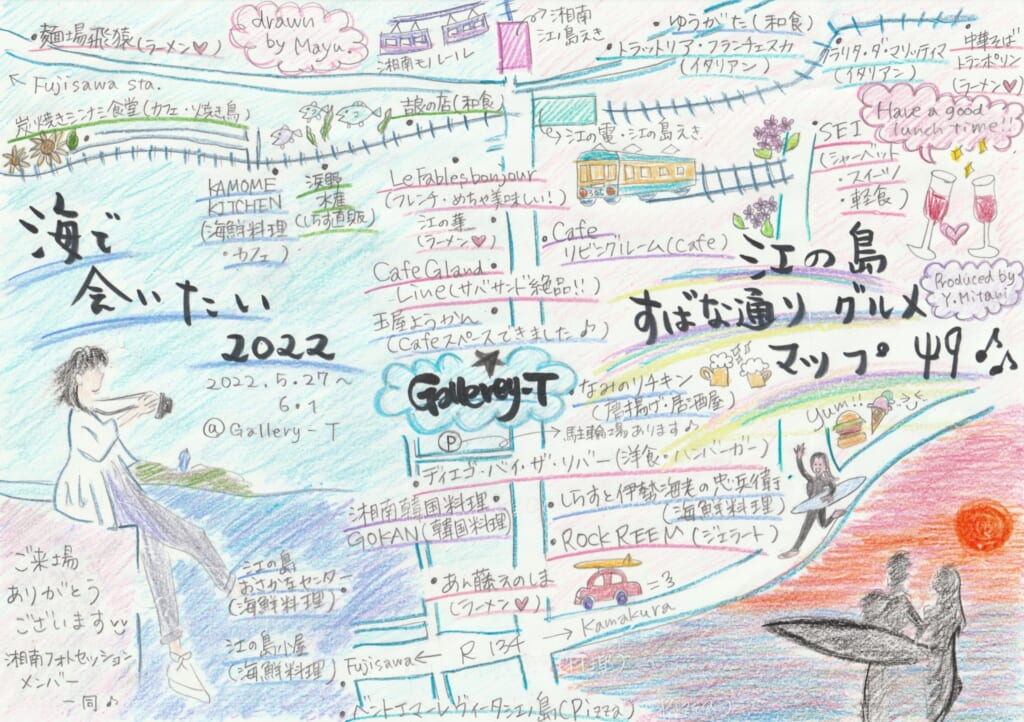 ・麺場飛猿(ラーメン♡)
drawn
by Mayu
湘南モノレール
↗湘南
江ノ島えき
・ゆうがた(和食)
・トラットリア・フランチェスカ
(イタリアン)
・クラリタ・ダ・マリッティマ
(イタリアン)
・中華そば
トランポリン
(ラーメン♡)
← Fujisawa sta.
炭焼きミナミ食堂(カフェ・ソ焼き鳥)
・吉良の店(和食)
↪江の電・江の島えき
Have a good
lunch time!!
・SEI
(シャーベット
・スイーツ
・軽食)
KAMOME
KITCHEN
(海鮮料理
・カフェ)
浜野
水産
(しらす直販)
Le Fables bonjour
(フレンチ・めちゃ美味しい!)
江の華
(ラーメン♡)
・Cafe
リビングルーム(Cafe)
Cafe Gland
Line(サバサンド絶品!!)
玉屋ようかん
(Cafeスペースできました♪)
海で
会いたい
2022
2022.5.27〜
6.1
@Gallery-T
江の島
すばな通り グルメ
マップ 49♪
Produced by
Y.Mitani
★
Gallerey-T
・なみのりチキン
(唐揚げ・居酒屋)
P
→駐輪場あります♪
yum!!
・ディエゴ・バイ・ザ・リバー(洋食・ハンバーガー)
湘南韓国料理
GOKAN(韓国料理)
・しらすと伊勢海老の忠兵衛
(海鮮料理)
・ROCK REEM(ジェラート)
・江の島
おさかなセンター
(海鮮料理)
・江の島小屋
(海鮮料理)
・あん藤えのしま
(ラーメン♡)
=3
→ Kamakura
Fujisawa ← R 134
・ベントエマーレ ヴィータ江ノ島(Pizza)
ご来場
ありがとう
ございます
湘南フォトセッション
メンバー
一同♪